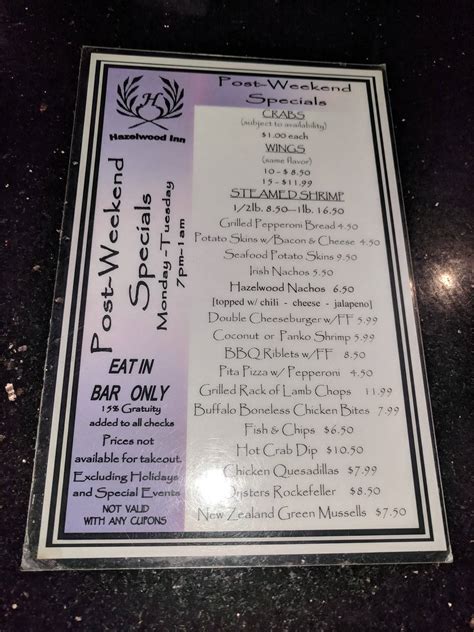 H
Hazelwood Inn
Post-Weekend
Specials
Monday -Tuesday
7pm-1am
EAT IN
BAR ONLY
15% Gratuity
added to all checks
Prices not
available for takeout.
Excluding Holidays
and Special Events
NOT VALID
WITH ANY CUPONS
Post-Weekend
Specials
CRABS
(subject to availability)
$1.00 each
WINGS
(same flavor)
10 - $ 8.50
15 - $11.99
STEAMED SHRIMP
1/2lb. 8.50—1lb. 16.50
Grilled Pepperoni Bread 4.50
Potato Skins w/Bacon & Cheese 4.50
Seafood Potato Skins 9.50
Irish Nachos 5.50
Hazelwood Nachos 6.50
[topped w/ chili - cheese - jalapeno]
Double Cheeseburger w/FF 5.99
Coconut or Panko Shrimp 5.99
BBQ Riblets w/FF 8.50
Pita Pizza w/ Pepperoni 4.50
Grilled Rack of Lamb Chops 11.99
Buffalo Boneless Chicken Bites 7.99
Fish & Chips $6.50
Hot Crab Dip $10.50
Chicken Quesadillas $7.99
Oysters Rockefeller $8.50
New Zealand Green Mussells $7.50